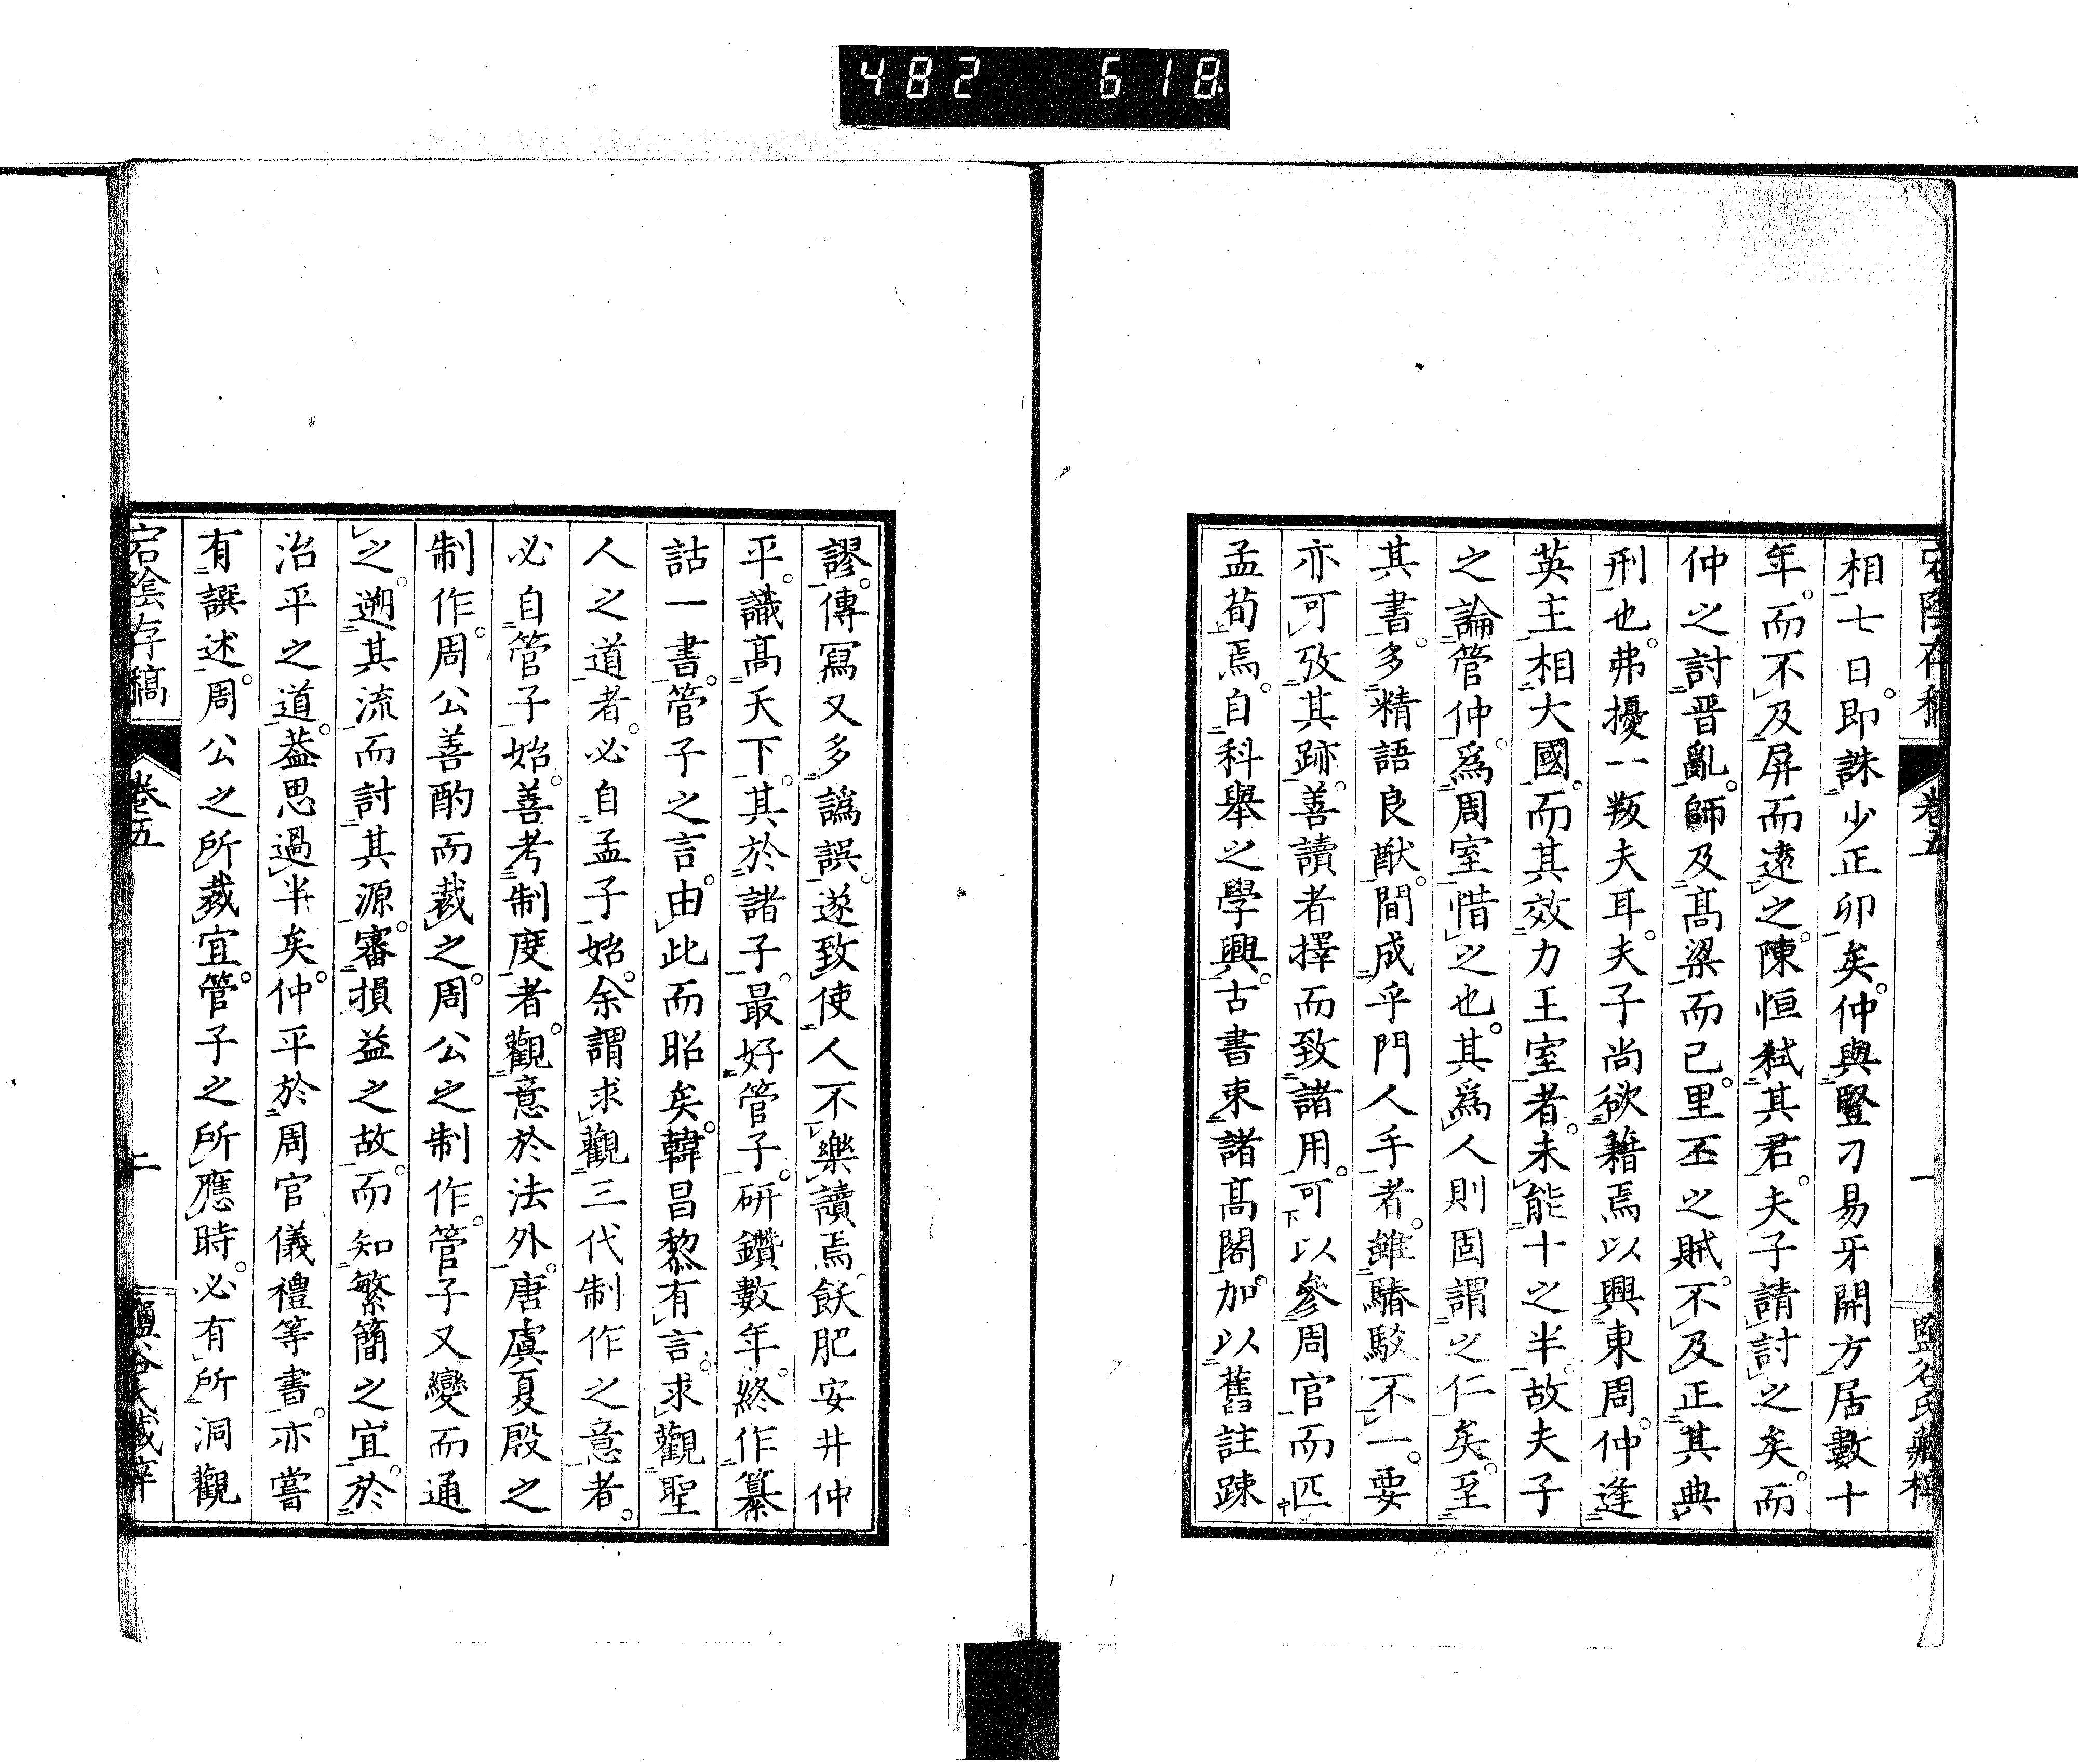 482 618
宕陰存稿 卷五 一 鹽谷氏藏梓
相七日。即誅少正卯矣。仲與豎刁易牙開方居數十
年。而不及屏而遠之。陳恒弑其君。夫子請討之矣。而
仲之討晋亂。師及高梁而已。里丕之賊。不及正其典
刑也。弗擾一叛夫耳。夫子尚欲藉焉以興東周。仲逢
英主相大國。而其效力王室者。未能十之半。故夫子
之論管仲。爲周室惜之也。其爲人則固謂之仁矣。至
其書。多精語良猷。間成乎門人手者。雖騞駁不一。要
亦可攷其跡。善讀者擇而致諸用。可以參周官而匹
孟荀焉。自科舉之學興。古書束諸高閣。加以舊註踈
謬。傳寫又多譌誤。遂致使人不樂讀焉。飫肥安井仲
平。識高天下。其於諸子。最好管子。研鑽數年。終作纂
詁一書。管子之言。由此而昭矣。韓昌黎有言。求觀聖
人之道者。必自孟子始。余謂求觀三代制作之意者。
必自管子始。善考制度者。觀意於法外。唐虞夏殷之
制作。周公善酌而裁之。周公之制作。管子又變而通
之。遡其流而討其源。審損益之故。而知繁簡之宜。於
治平之道。葢思過半矣。仲平於周官儀禮等書。亦嘗
有譔述。周公之所裁宜。管子之所應時。必有所洞觀
宕陰存稿 卷五 二 鹽谷氏藏梓